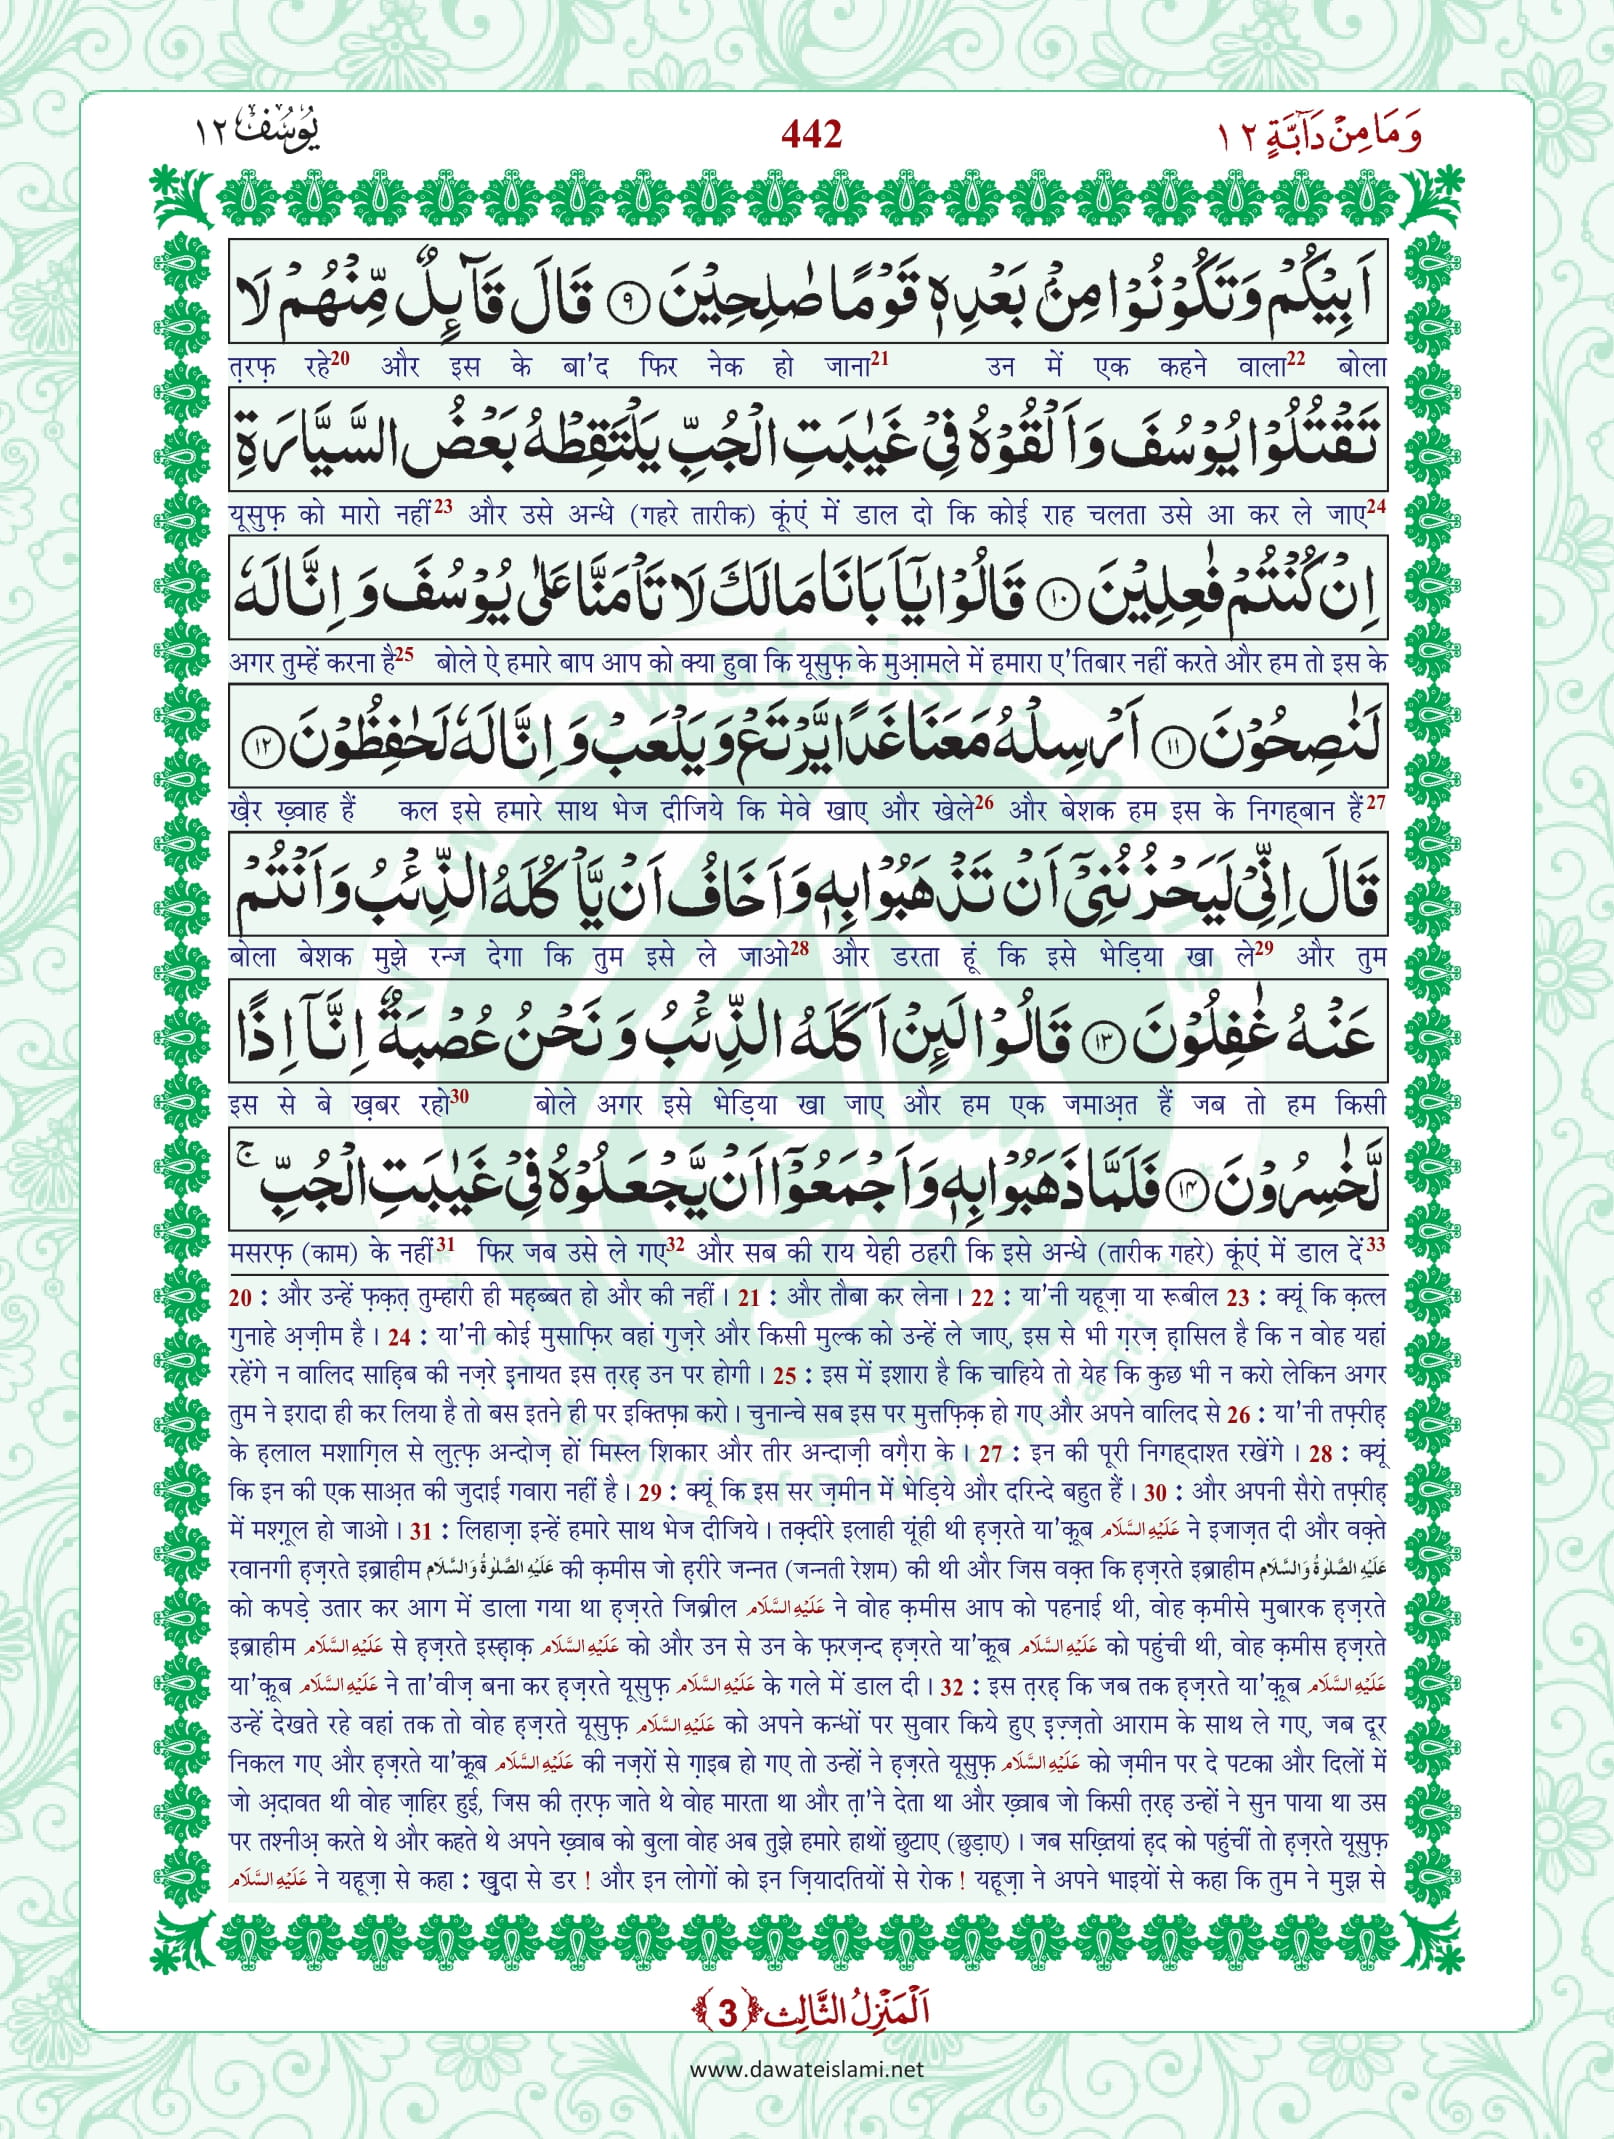 وَمَا مِنْ دَآبَّةٍ ١٢
442
يُوْسُف ١٢
اَبِيْكُمْ وَتَكُوْنُوْا مِنْۢ بَعْدِهٖ قَوْمًا صٰلِحِيْنَ ۹ قَالَ قَآىِٕلٌ مِّنْهُمْ لَا
त़रफ़ रहे20 और इस के बा'द फिर नेक हो जाना21 उन में एक कहने वाला22 बोला
تَقْتُلُوْا يُوْسُفَ وَاَلْقُوْهُ فِیْ غَیٰبَتِ الْجُبِّ یَلْتَقِطْهُ بَعْضُ السَّیَّارَةِ
यूसुफ़ को मारो नहीं23 और उसे अन्धे (गहरे तारीक) कूंएं में डाल दो कि कोई राह चलता उसे आ कर ले जाए24
اِنْ كُنْتُمْ فٰعِلِیْنَ ۱۰ قَالُوْا یٰۤاَبَانَا مَالَكَ لَا تَاْمَنَّا عَلٰى یُوْسُفَ وَ اِنَّا لَهٗ
अगर तुम्हें करना है25 बोले ऐ हमारे बाप आप को क्या हुवा कि यूसुफ़ के मुआ़मले में हमारा ए'तिबार नहीं करते और हम तो इस के
لَنٰصِحُوْنَ ۱۱ اَرْسِلْهُ مَعَنَا غَدًا یَّرْتَعْ وَیَلْعَبْ وَ اِنَّا لَهٗ لَحٰفِظُوْنَ ۱۲
ख़ैर ख़्वाह हैं कल इसे हमारे साथ भेज दीजिये कि मेवे खाए और खेले26 और बेशक हम इस के निगहबान हैं27
قَالَ اِنِّیْ لَیَحْزُنُنِیْۤ اَنْ تَذْهَبُوْا بِهٖ وَاَخَافُ اَنْ یَّاْكُلَهُ الذِّئْبُ وَاَنْتُمْ
बोला बेशक मुझे रन्ज देगा कि तुम इसे ले जाओ28 और डरता हूं कि इसे भेड़िया खा ले29 और तुम
عَنْهُ غٰفِلُوْنَ ۱۳ قَالُوْا لَىِٕنْ اَكَلَهُ الذِّئْبُ وَ نَحْنُ عُصْبَةٌ اِنَّاۤ اِذًا
इस से बे ख़बर रहो30 बोले अगर इसे भेड़िया खा जाए और हम एक जमाअ़त हैं जब तो हम किसी
لَّخٰسِرُوْنَ ۱۴ فَلَمَّا ذَهَبُوْا بِهٖ وَاَجْمَعُوْۤا اَنْ یَّجْعَلُوْهُ فِیْ غَیٰبَتِ الْجُبِّ ۚ
मसरफ़ (काम) के नहीं31 फिर जब उसे ले गए32 और सब की राय येही ठहरी कि इसे अन्धे (तारीक गहरे) कूंएं में डाल दें33
20 : और उन्हें फ़क़त़ तुम्हारी ही मह़ब्बत हो और की नहीं । 21 : और तौबा कर लेना । 22 : या'नी यहूज़ा या रूबील 23 : क्यूं कि क़त्ल
गुनाहे अ़ज़ीम है । 24 : या'नी कोई मुसाफ़िर वहां गुज़रे और किसी मुल्क को उन्हें ले जाए, इस से भी ग़रज़ ह़ासिल है कि न वोह यहां
रहेंगे न वालिद साह़िब की नज़रे इ़नायत इस त़रह़ उन पर होगी । 25 : इस में इशारा है कि चाहिये तो येह कि कुछ भी न करो लेकिन अगर
तुम ने इरादा ही कर लिया है तो बस इतने ही पर इक्तिफ़ा करो । चुनान्चे सब इस पर मुत्तफ़िक़ हो गए और अपने वालिद से 26 : या'नी तफ़्रीह़
के ह़लाल मशाग़िल से लुत़्फ़ अन्दोज़ हों मिस्ल शिकार और तीर अन्दाज़ी वग़ैरा के । 27 : इन की पूरी निगहदाश्त रखेंगे । 28 : क्यूं
कि इन की एक साअ़त की जुदाई गवारा नहीं है । 29 : क्यूं कि इस सर ज़मीन में भेड़िये और दरिन्दे बहुत हैं । 30 : और अपनी सैरो तफ़्रीह़
में मश्ग़ूल हो जाओ । 31 : लिहाज़ा इन्हें हमारे साथ भेज दीजिये । तक़्दीरे इलाही यूंही थी ह़ज़रते या'क़ूब عَلَیْهِ السَّلَام ने इजाज़त दी और वक़्ते
रवानगी ह़ज़रते इब्राहीम عَلَیْهِ الصَّلٰوةُ وَالسَّلَام की क़मीस जो ह़रीरे जन्नत (जन्नती रेशम) की थी और जिस वक़्त कि ह़ज़रते इब्राहीम عَلَیْهِ الصَّلٰوةُ وَالسَّلَام
को कपड़े उतार कर आग में डाला गया था ह़ज़रते जिब्रील عَلَیْهِ السَّلَام ने वोह क़मीस आप को पहनाई थी, वोह क़मीसे मुबारक ह़ज़रते
इब्राहीम عَلَیْهِ السَّلَام से ह़ज़रते इस्ह़ाक़ عَلَیْهِ السَّلَام को और उन से उन के फ़रज़न्द ह़ज़रते या'क़ूब عَلَیْهِ السَّلَام को पहुंची थी, वोह क़मीस ह़ज़रते
या'क़ूब عَلَیْهِ السَّلَام ने ता'वीज़ बना कर ह़ज़रते यूसुफ़ عَلَیْهِ السَّلَام के गले में डाल दी । 32 : इस त़रह़ कि जब तक ह़ज़रते या'क़ूब عَلَیْهِ السَّلَام
उन्हें देखते रहे वहां तक तो वोह ह़ज़रते यूसुफ़ عَلَیْهِ السَّلَام को अपने कन्धों पर सुवार किये हुए इ़ज़्ज़तो आराम के साथ ले गए, जब दूर
निकल गए और ह़ज़रते या'क़ूब عَلَیْهِ السَّلَام की नज़रों से ग़ाइब हो गए तो उन्हों ने ह़ज़रते यूसुफ़ عَلَیْهِ السَّلَام को ज़मीन पर दे पटका और दिलों में
जो अ़दावत थी वोह ज़ाहिर हुई, जिस की त़रफ़ जाते थे वोह मारता था और त़ा'ने देता था और ख़्वाब जो किसी त़रह़ उन्हों ने सुन पाया था उस
पर तश्नीअ़ करते थे और कहते थे अपने ख़्वाब को बुला वोह अब तुझे हमारे हाथों छुटाए (छुड़ाए) । जब सख़्तियां ह़द को पहुंचीं तो ह़ज़रते यूसुफ़
عَلَیْهِ السَّلَام ने यहूज़ा से कहा : खुदा से डर ! और इन लोगों को इन ज़ियादतियों से रोक ! यहूज़ा ने अपने भाइयों से कहा कि तुम ने मुझ से
اَلْمَنْزِلُ الثَّالِث ﴿3﴾
www.dawateislami.net